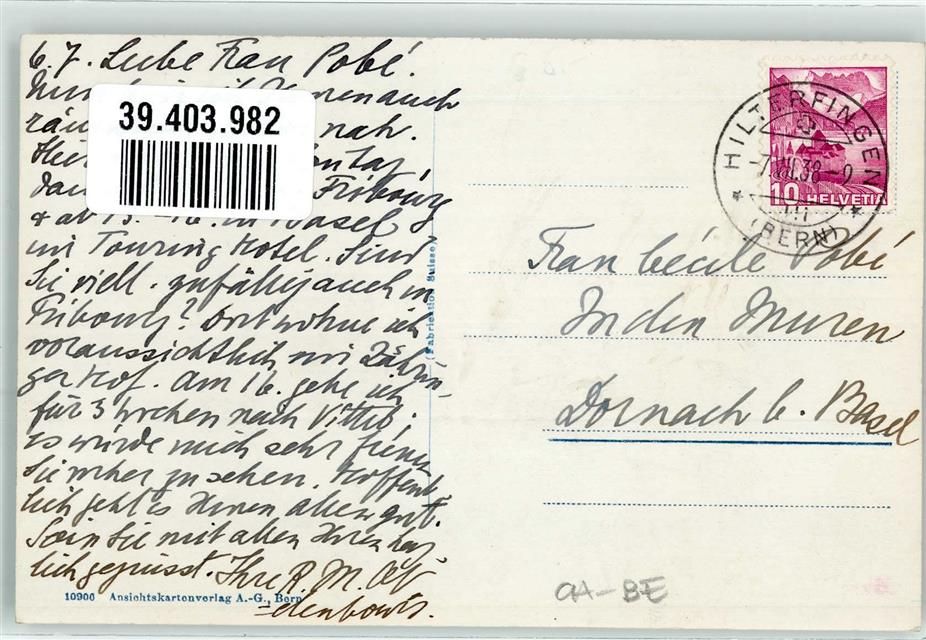 6.7. Liebe Frau Pobé.
auch
39.403.982
nah.
Fribourg
& ab 15.-16. in Basel
im Touring Hotel. Sind
Sie viell. zufällig auch in
Fribourg? Dort wohne ich
voraussichtlich im Zährin-
ger Hof. Am 16. gehe ich
für 3 Wochen nach Vittel.
es würde mich sehr freuen
Sie vorher zu sehen. Hoffent-
lich geht es Ihnen allen gut.
Seien Sie mit allen Ihren herz-
lich gegrüsst. Ihre R. M.
10906 Ansichtskartenverlag A.-G., Bern
(Fabrication Suisse)
HILTERFINGEN
-7.VII.38.-9
(BERN)
10 HELVETIA
Frau Cécile Pobé
In den Muren
Dornach b. Basel
CA-BE